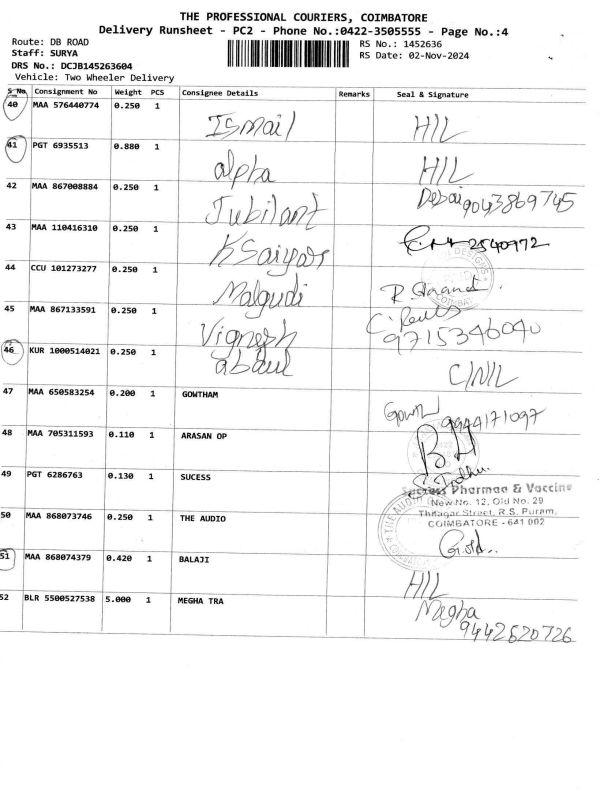 THE PROFESSIONAL COURIERS, COIMBATORE
Delivery Runsheet - PC2 - Phone No.:0422-3505555 - Page No.:4
Route: DB ROAD
Staff: SURYA
DRS No.: DCJB145263604
Vehicle: Two Wheeler Delivery
RS No.: 1452636
RS Date: 02-Nov-2024
S No. Consignment No Weight PCS Consignee Details Remarks Seal & Signature
40 MAA 576440774 0.250 1 Ismail H/L
41 PGT 6935513 0.880 1 alpha H/L
42 MAA 867008884 0.250 1 Jubilant 9043869745
43 MAA 110416310 0.250 1 K Saiyas 2540972
44 CCU 101273277 0.250 1 Malgudi R
45 MAA 867133591 0.250 1 Vignesh 9715346040
46 KUR 1000514021 0.250 1 abdul C/N/L
47 MAA 650583254 0.200 1 GOWTHAM 9944171097
48 MAA 705311593 0.110 1 ARASAN OP
49 PGT 6286763 0.130 1 SUCESS
Success Pharmaa & Vaccine
New No. 12, Old No. 29
Street, R.S. Puram,
COIMBATORE - 641 002
50 MAA 868073746 0.250 1 THE AUDIO
51 MAA 868074379 0.420 1 BALAJI H/L
52 BLR 5500527538 5.000 1 MEGHA TRA Megha
9442620726